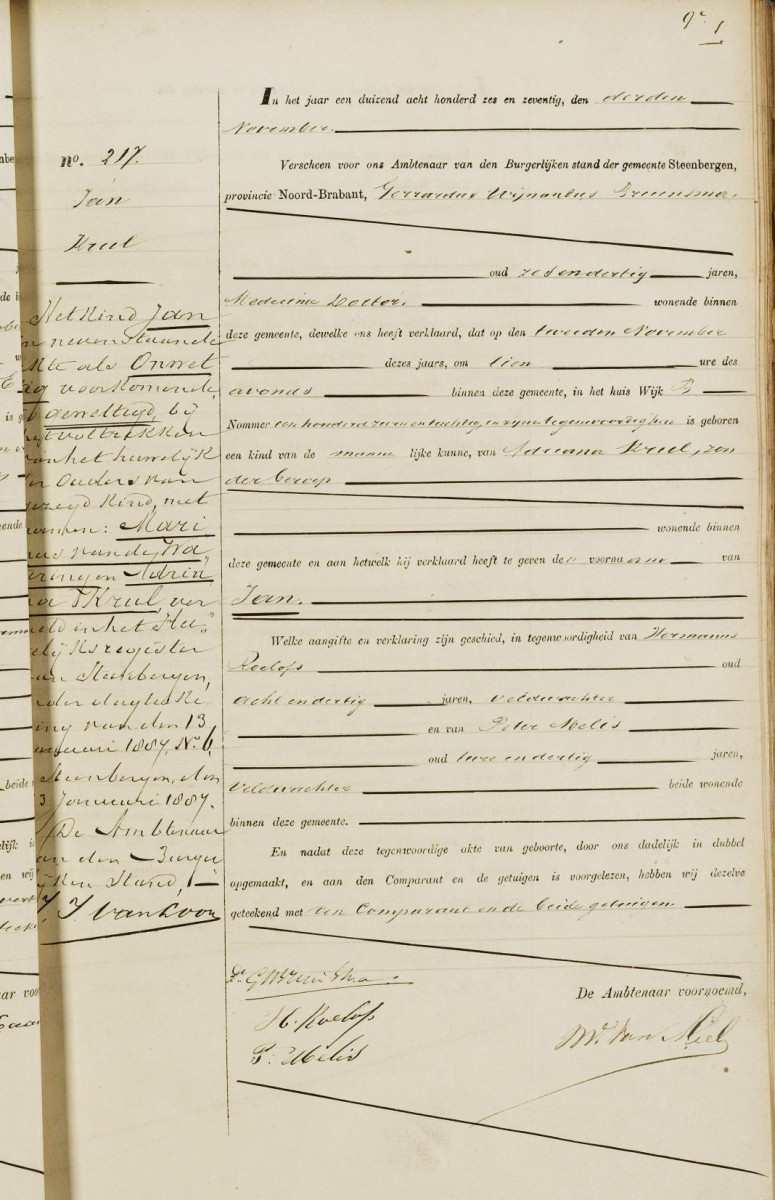 1
In het jaar een duizend acht honderd zes en zeventig, den derden
November.
no. 217.
Jan
Krul
Verscheen voor ons Ambtenaar van den Burgerlijken stand der gemeente Steenbergen,
provincie Noord-Brabant, Gerrardus Wijnandus Bruinsma.
oud zesendertig jaren,
Medecina Doctor, wonende binnen
deze gemeente, dewelke ons heeft verklaard, dat op den tweeden November
dezes jaars, om tien ure des
avonds binnen deze gemeente, in het huis Wijk B
Nommer een honderd zeven en tachtig, in zijne tegenwoordigheid is geboren
een kind van de manne lijke kunne, van Adriana Krul, zon
der beroep
wonende binnen
deze gemeente en aan hetwelk hij verklaard heeft te geven de voorna van
Jan.
Welke aangifte en verklaring zijn geschied, in tegenwoordigheid van Hermanus
Roelofs oud
acht en dertig jaren, veldwachter
en van Peter Melis
oud twee en dertig jaren,
veldwachter beide wonende
binnen deze gemeente.
En nadat deze tegenwoordige akte van geboorte, door ons dadelijk in dubbel
opgemaakt, en aan den Comparant en de getuigen is voorgelezen, hebben wij dezelve
geteekend met den Comparant en de beide getuigen
Dr GW Bruinsma.
H. Roelofs
P. Melis
De Ambtenaar voornoemd,
Van Niel
Het kind Jan
nevenstaande
akte als Onwet
tig voorkomende,
is gewettigd, bij
het voltrekken
van het huwelijk
der Ouders van
gezegd kind, met
namen: Mari
nus van de Wa
tering en Adria"
na Krul, ver
meld in het Hu"
welijksregister
van Steenbergen,
onder dagteeke
ning van den 13
Januari 1887, No 6,
Steenbergen, den
13 Januari 1887.
De Ambtenaar
van den Burger
lijken Stand,
J. van Loon